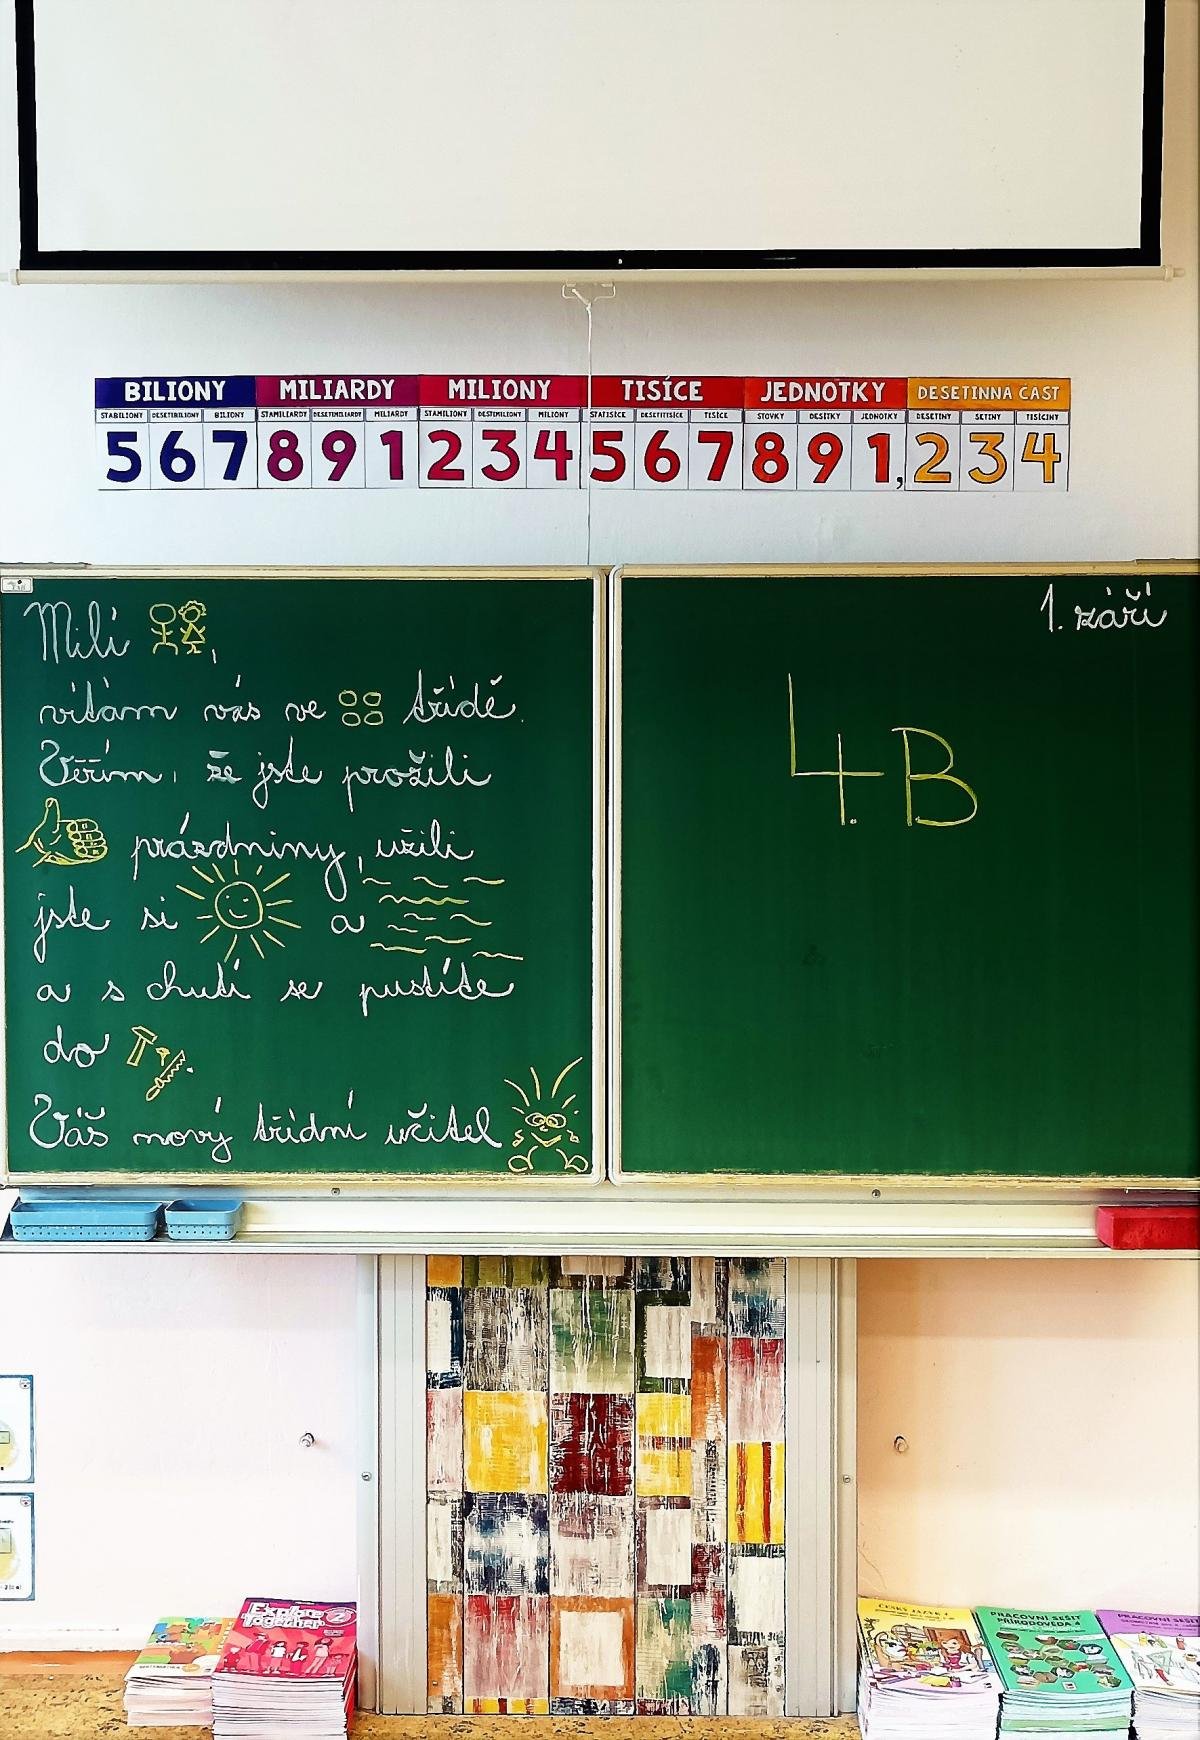 BILIONY MILIARDY MILIONY TISÍCE JEDNOTKY DESETINNA CAST
STABILIONY DESETIBILIONY BILIONY STAMILIARDY DESETIMILIARDY MILIARDY STAMILIONY DESTIMILIONY MILIONY STATISÍCE DESETITISÍCE TISÍCE STOVKY DESÍTKY JEDNOTKY DESETINY SETINY TISÍCINY
5 6 7 8 9 1 2 3 4 5 6 7 8 9 1, 2 3 4
Milí ,
vítám vás ve třídě.
Věřím, že jste prožili
prázdniny, užili
jste si a
a s chutí se pustíte
do .
Váš nový třídní učitel
1. září
4.B
Explore Together 2
MATEMATIKA
ČESKÝ JAZYK 4
PRACOVNÍ SEŠIT
PŘÍRODOVĚDA 4
PRACOVNÍ SEŠIT